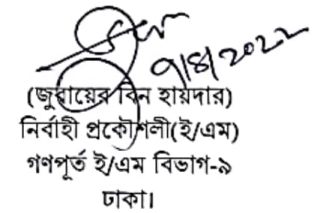 ৭/৪/২০২২
(জুবায়ের বিন হায়দার)
নির্বাহী প্রকৌশলী(ই/এম)
গণপূর্ত ই/এম বিভাগ-৯
ঢাকা।